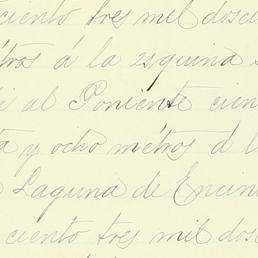 ciento tres mil dosci
tros á la esquina s
i al Poniente cien
a y ocho métros á l
Laguna de Encin
ciento tres mil dos